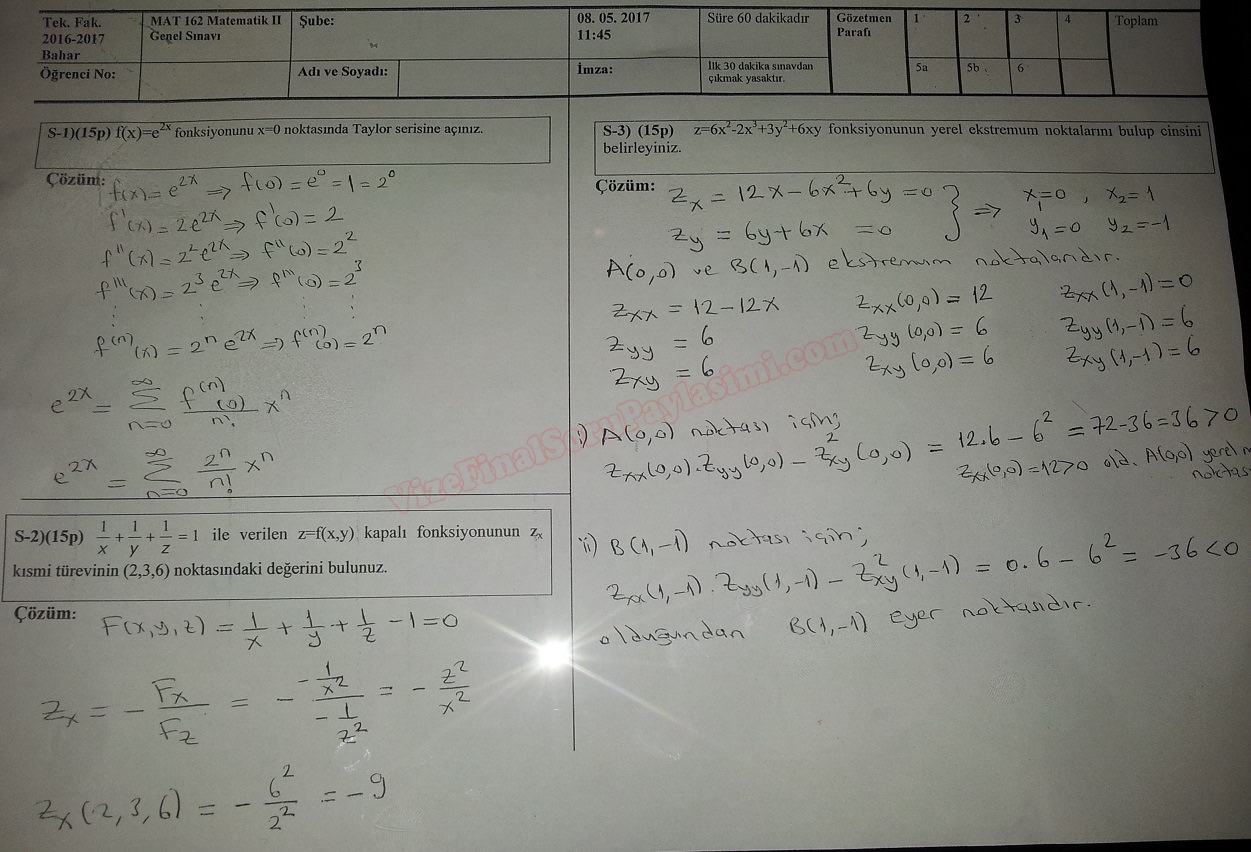 Tek. Fak.
2016-2017
Bahar
MAT 162 Matematik II
Genel Sınavı
Şube:
08. 05. 2017
11:45
Süre 60 dakikadır
Gözetmen
Parafı
1 2 3 4 Toplam
Öğrenci No:
Adı ve Soyadı:
İmza:
İlk 30 dakika sınavdan
çıkmak yasaktır.
5a 5b 6
S-1)(15p) f(x)=e^{2x} fonksiyonunu x=0 noktasında Taylor serisine açınız.
Çözüm:
f(x) = e^{2x} ⇒ f(0) = e^0 = 1 = 2^0
f'(x) = 2e^{2x} ⇒ f'(0) = 2
f''(x) = 2^2 e^{2x} ⇒ f''(0) = 2^2
f'''(x) = 2^3 e^{2x} ⇒ f'''(0) = 2^3
⋮ ⋮ ⋮ ⋮
f^{(n)}(x) = 2^n e^{2x} ⇒ f^{(n)}(0) = 2^n
e^{2x} = ∑_{n=0}^{∞} f^{(n)}(0)/n! x^n
e^{2x} = ∑_{n=0}^{∞} 2^n/n! x^n
S-2)(15p) 1/x + 1/y + 1/z = 1 ile verilen z=f(x,y) kapalı fonksiyonunun z_x
kısmi türevinin (2,3,6) noktasındaki değerini bulunuz.
Çözüm:
F(x,y,z) = 1/x + 1/y + 1/z - 1 = 0
z_x = - F_x/F_z = - (-1/x^2)/(-1/z^2) = - z^2/x^2
z_x(2,3,6) = - 6^2/2^2 = -9
S-3) (15p) z=6x^2-2x^3+3y^2+6xy fonksiyonunun yerel ekstremum noktalarını bulup cinsini
belirleyiniz.
Çözüm:
z_x = 12x - 6x^2 + 6y = 0 } ⇒ x_1=0 , x_2=1
z_y = 6y + 6x = 0 y_1=0 y_2=-1
A(0,0) ve B(1,-1) ekstremum noktalarıdır.
z_xx = 12 - 12x z_xx(0,0) = 12 z_xx(1,-1) = 0
z_yy = 6 z_yy(0,0) = 6 z_yy(1,-1) = 6
z_xy = 6 z_xy(0,0) = 6 z_xy(1,-1) = 6
i) A(0,0) noktası için;
z_xx(0,0).z_yy(0,0) - z_xy^2(0,0) = 12.6 - 6^2 = 72-36 = 36 > 0
z_xx(0,0) = 12>0 old. A(0,0) yerel
ii) B(1,-1) noktası için;
z_xx(1,-1). z_yy(1,-1) - z_xy^2(1,-1) = 0.6 - 6^2 = -36 < 0
olduğundan B(1,-1) eyer noktasıdır.
VizeFinalSoruPaylasimi.com